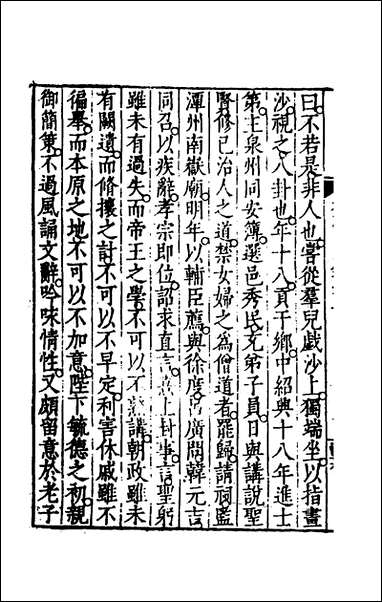 曰不若是非人也嘗從羣兒戲沙上獨端坐以指畫
沙視之八卦也年十八貢于鄉中紹興十八年進士
第主泉州同安簿選邑秀民充弟子員日與講說聖
賢修已治人之道禁女婦之為僧道者罷歸請祠監
潭州南嶽廟明年以輔臣薦與徐度呂廣問韓元吉
同召以疾辭孝宗即位詔求直言熹上封事言聖躬
雖未有過失而帝王之學不可以不熟講朝政雖未
有闕遺而脩攘之計不可以不早定利害休戚雖不
徧舉而本原之地不可以不加意陛下毓德之初親
御簡策不過風誦文辭吟味情性又頗留意於老子